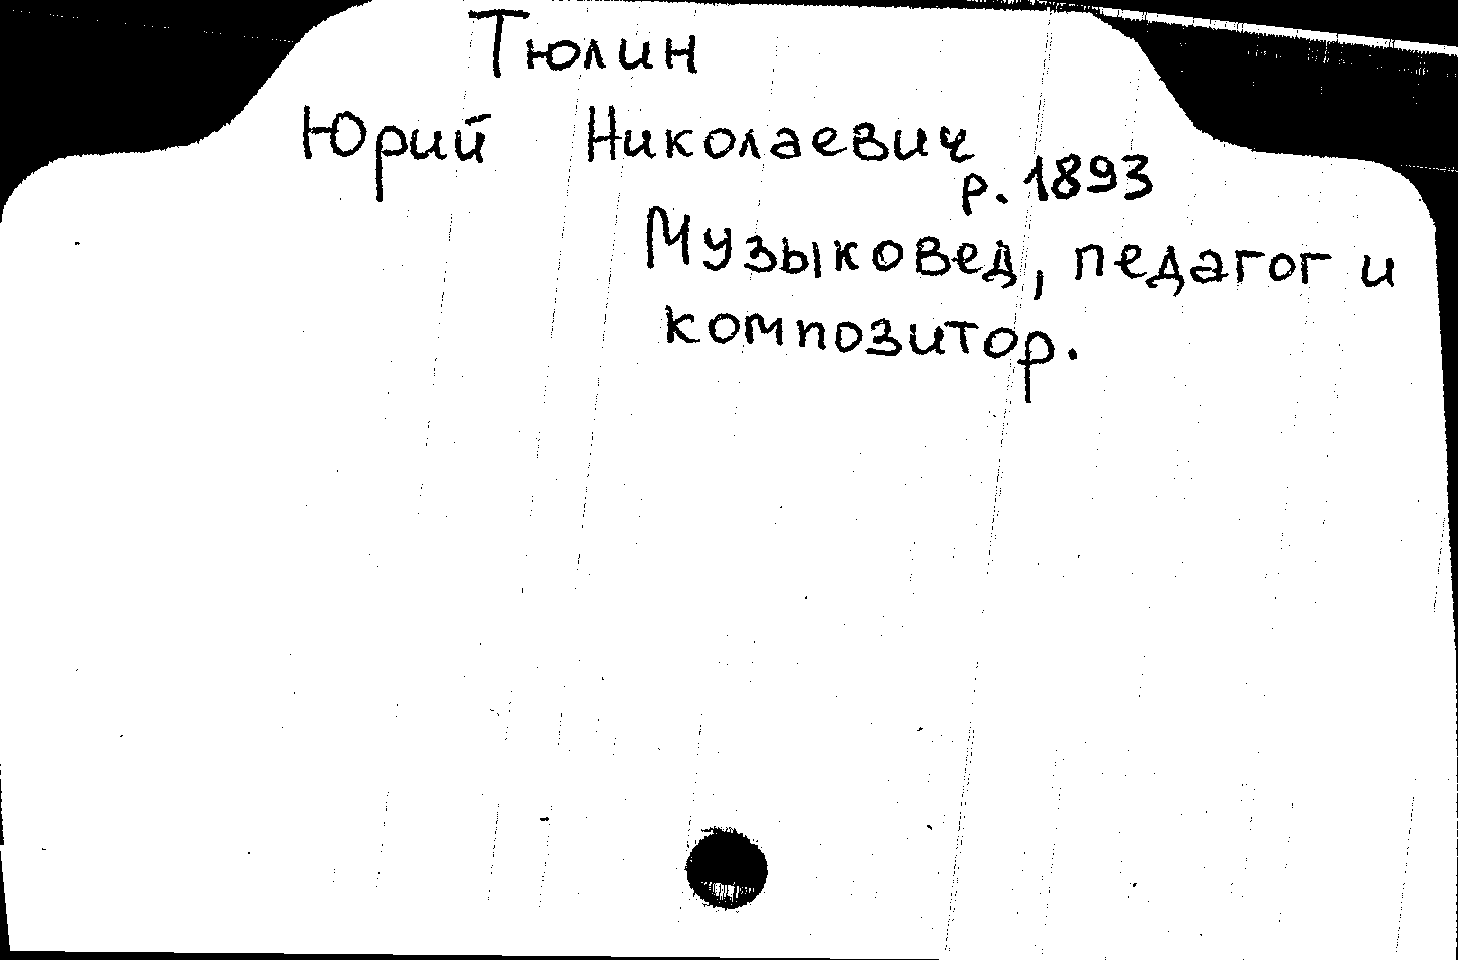 Тюлин
Юрий Николаевич
р. 1893
Музыковед, педагог и
композитор.